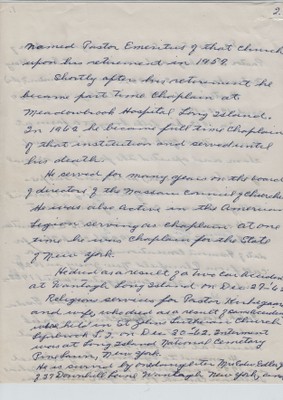 2
Named Pastor Emeritus of that Church
upon his retirement in 1959.
Shortly after his retirement he
became part time Chaplain at
Meadowbrook Hospital Long Island.
In 1962 he became full time Chaplain
of that institution and served until
his death.
He served for many years on the board
of directors of the Nassau Council of Churches
He was also active in the American
Legion serving as Chaplain at one
time he was Chaplain for the State
of New York.
He died as a result of a two car accident
at Wantagh Long Island on Dec 27-62
Religious services for Pastor
and wife, who died as a result of same accident
were held in St. Johns Lutheran Church
Lynbrook L.I. on Dec. 30-62. Interment
was at Long Island National Cemetery
Pinelawn, New York.
He is survived by one daughter Mrs
Lane Wantagh New York,